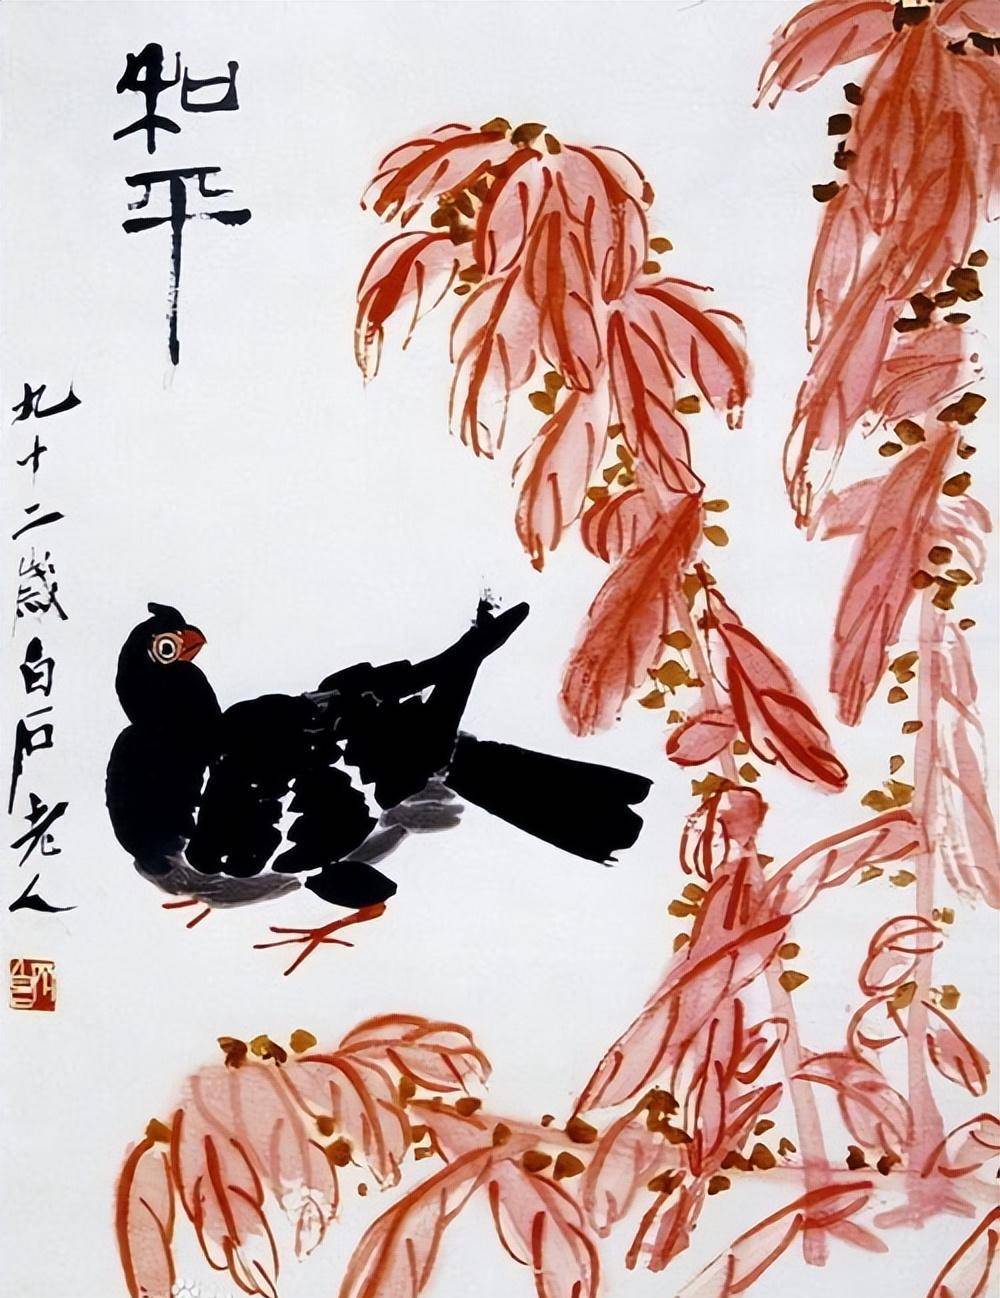 和平
九十二歲白石老人